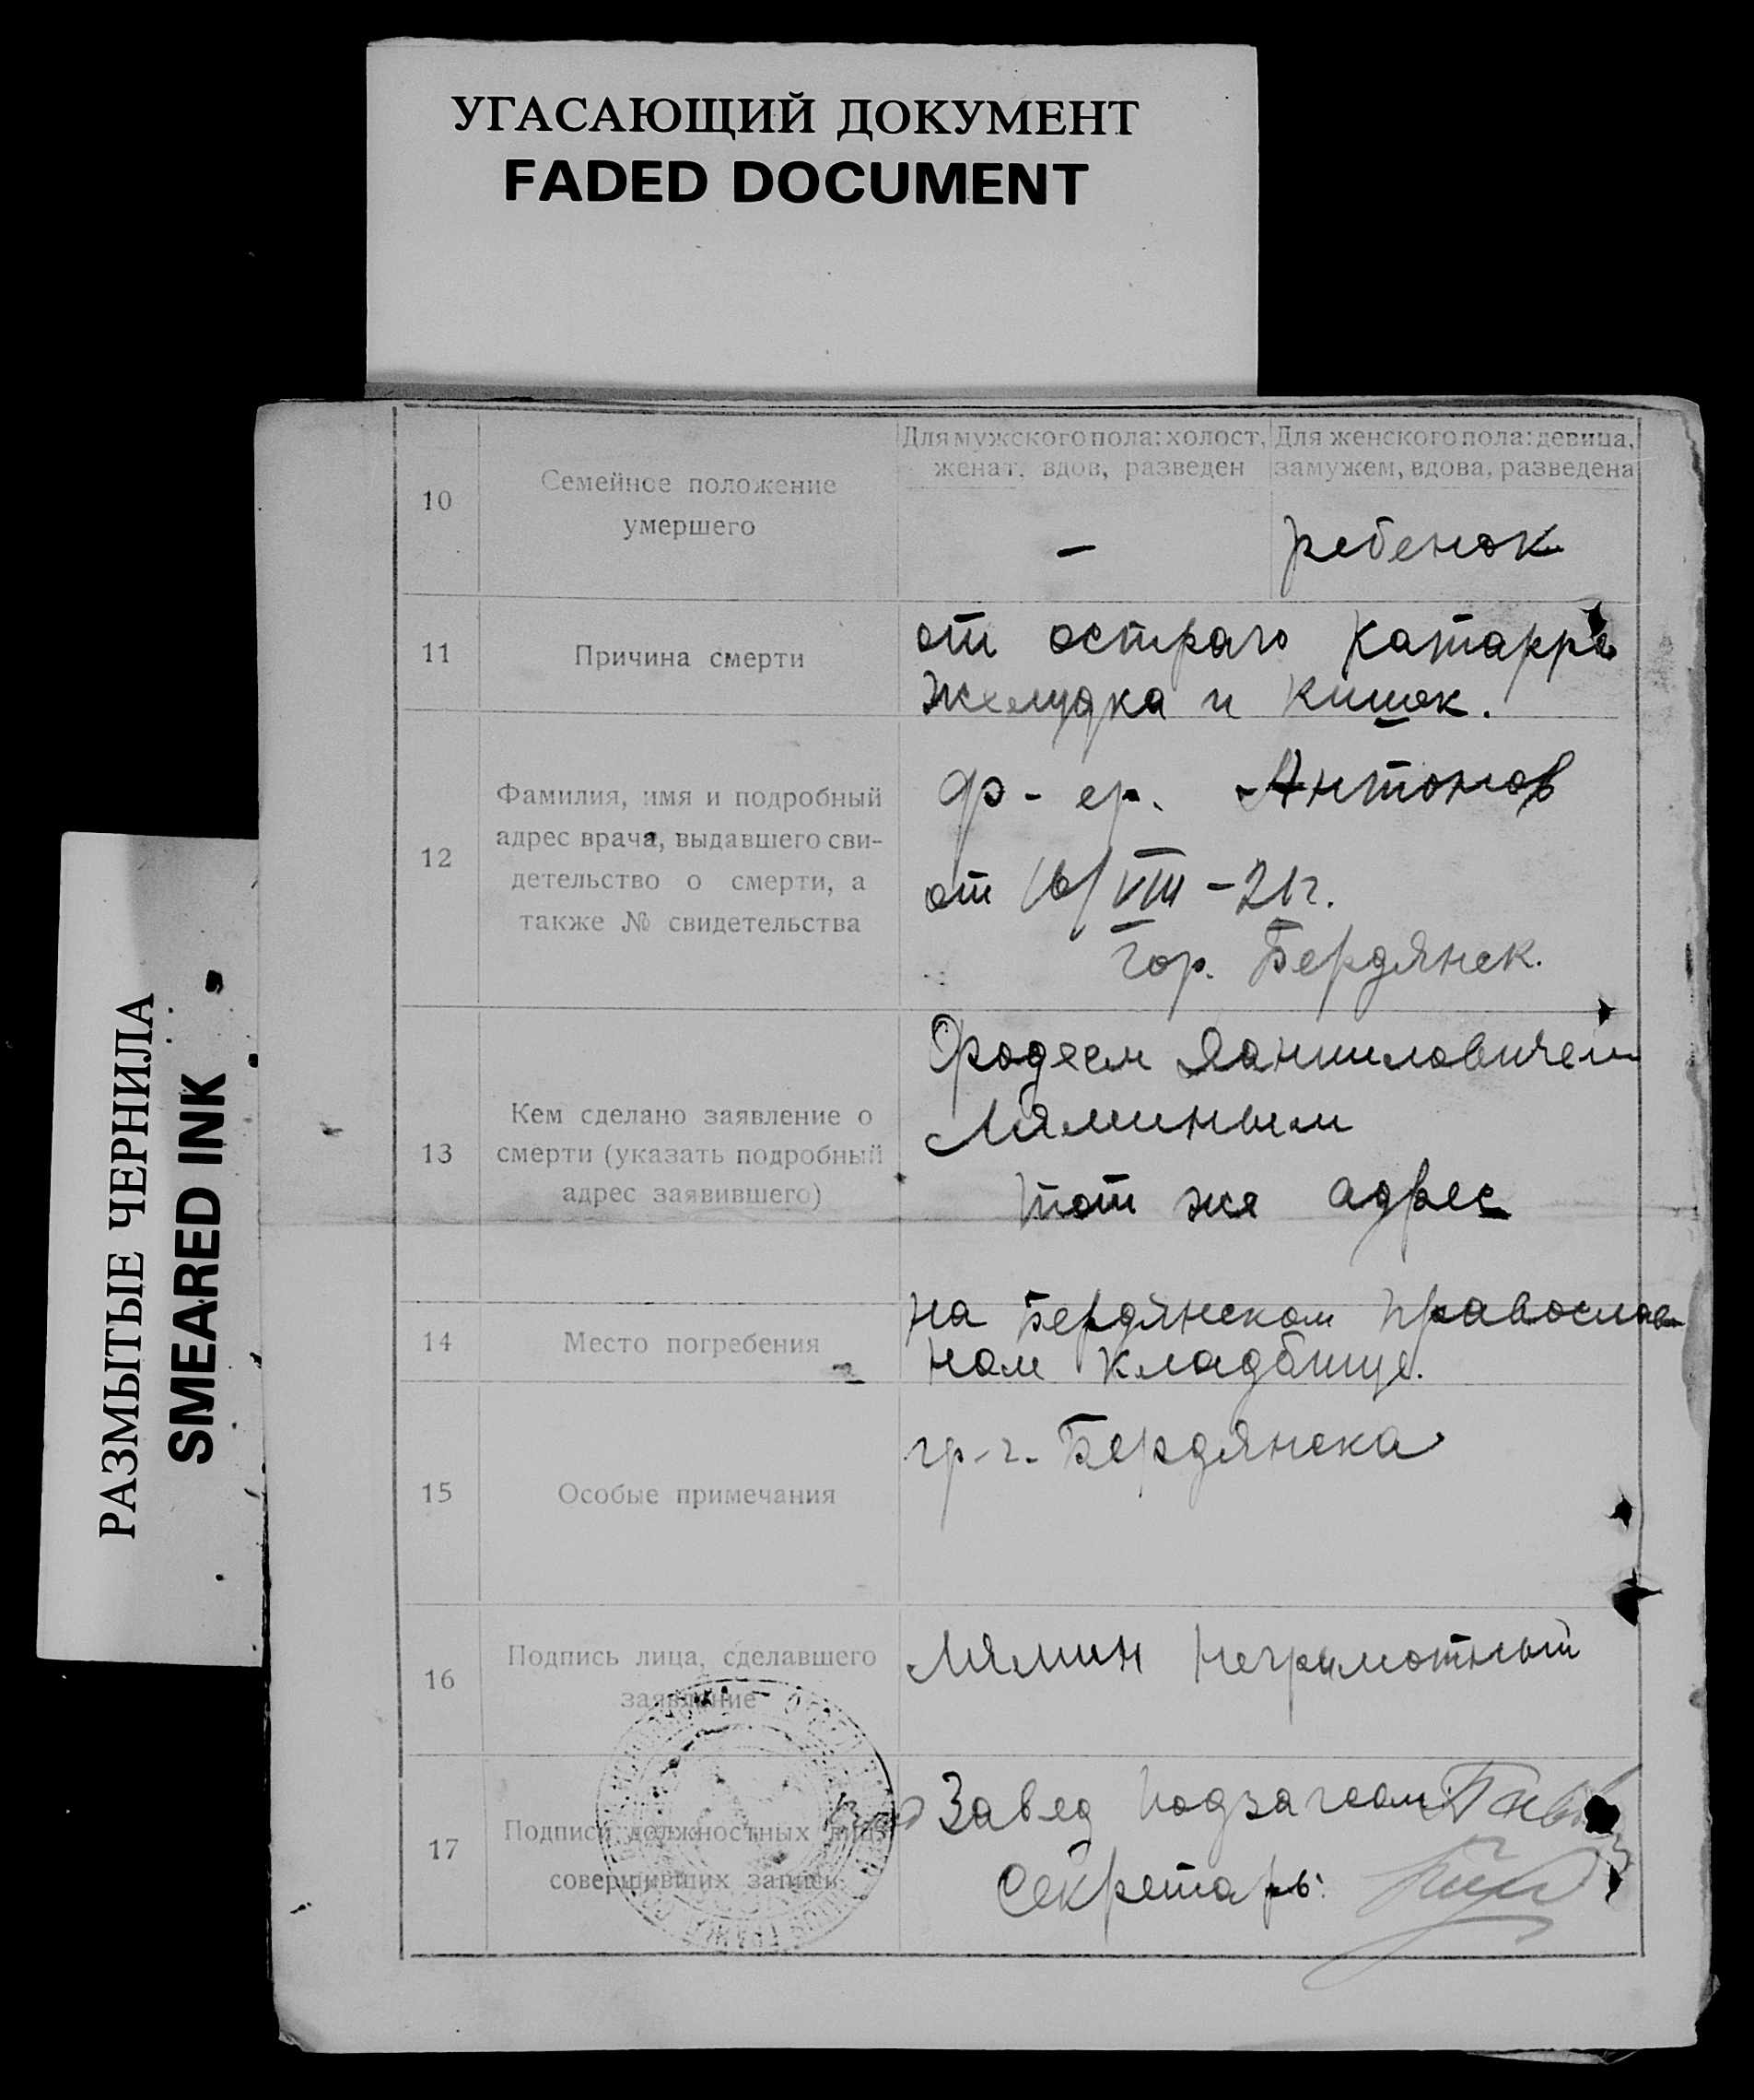 УГАСАЮЩИЙ ДОКУМЕНТ
FADED DOCUMENT
РАЗМЫТЫЕ ЧЕРНИЛА
SMEARED INK
10
Семейное положение
умершего
Для мужского пола: холост,
женат, вдов, разведен
Для женского пола: девица,
замужем, вдова, разведена
—
ребенок
11
Причина смерти
от остраго катарра
желудка и кишек.
12
Фамилия, имя и подробный
адрес врача, выдавшего сви-
детельство о смерти, а
также № свидетельства
ф-ер. Антонов
от 16/VIII – 21 г.
гор. Бердянск.
13
Кем сделано заявление о
смерти (указать подробный
адрес заявившего)
Фадеем Даниловичем
Ляминым
тот же адрес
14
Место погребения
на Бердянском православ
ном кладбище.
15
Особые примечания
гр-г. Бердянска
16
Подпись лица, сделавшего
заявление
Лямин неграмотный
17
Подписи должностных лиц,
совершивших запись
Завед подзагсом
Секретарь: